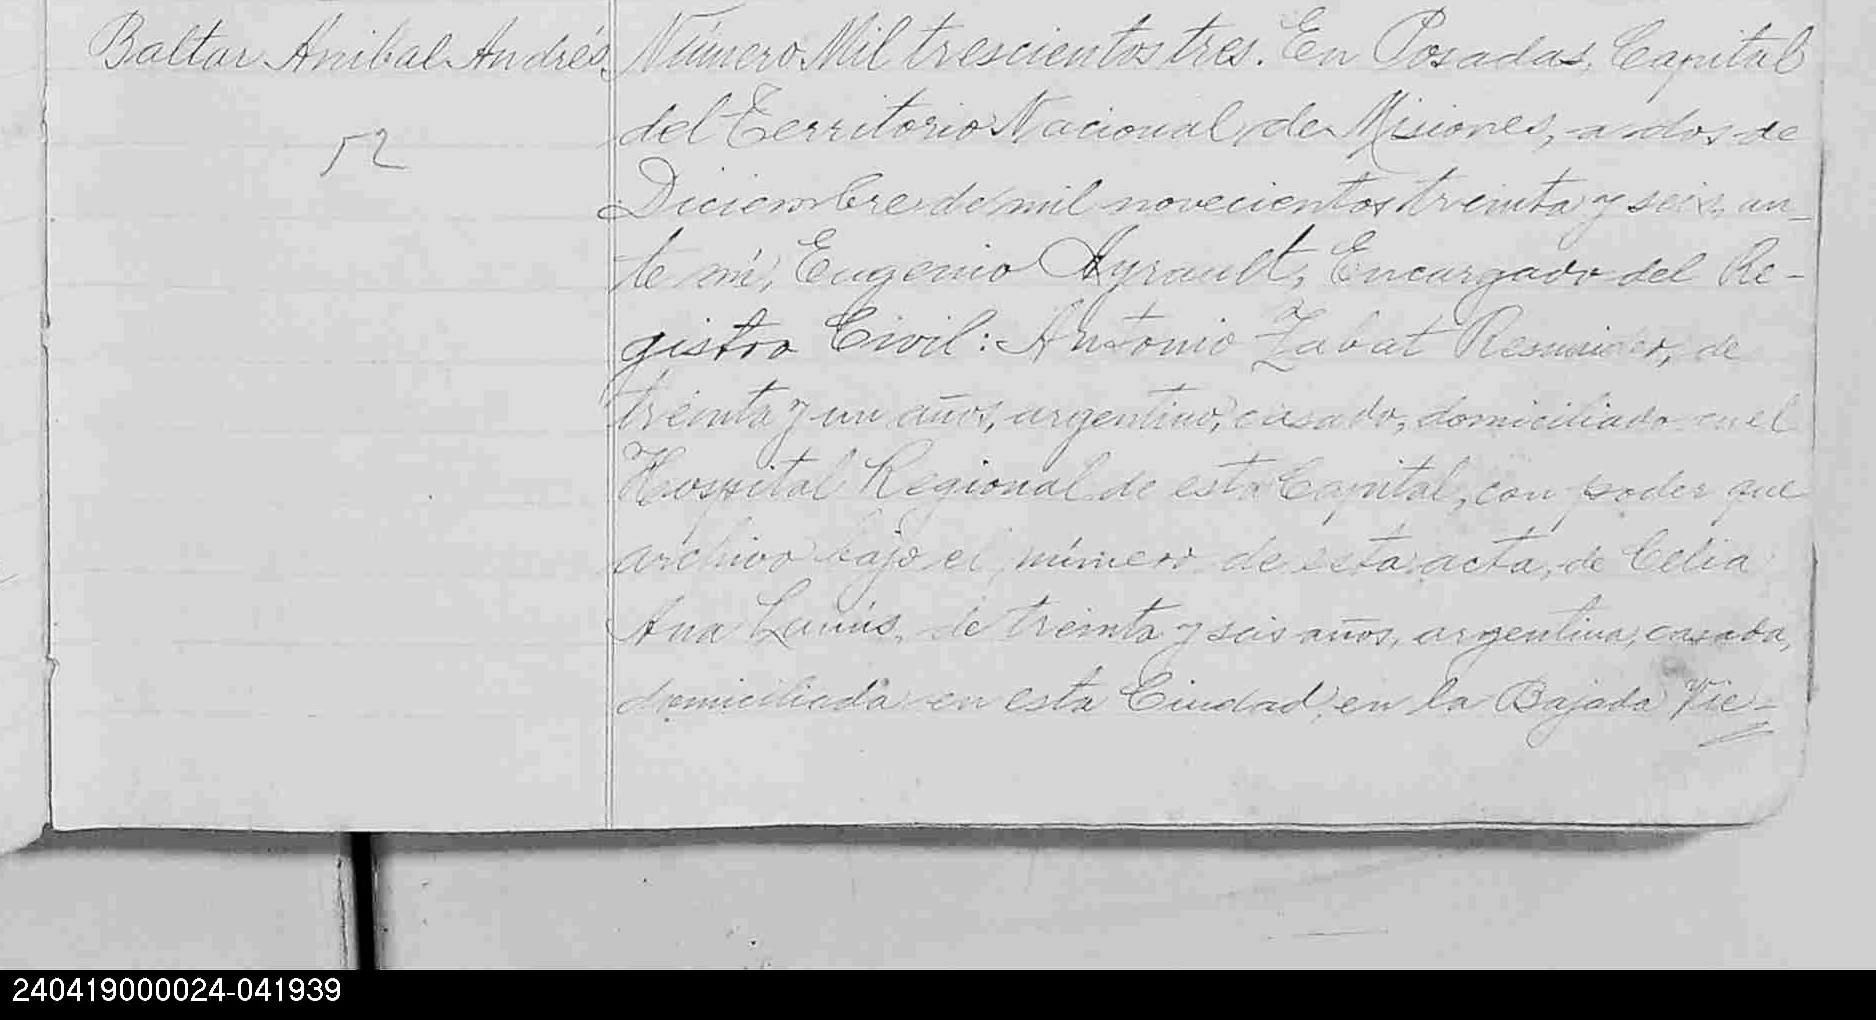 Baltar Anibal Andrés
52
Número Mil trescientos tres. En Posadas, Capital
del Territorio Nacional de Misiones, a dos de
Diciembre de mil novecientos treinta y seis, an-
te mí, Eugenio Ayrault, Encargado del Re-
gistro Civil: Antonio Zabat de
treinta y un años, argentino, casado, domiciliado en el
Hospital Regional de esta Capital, con poder que
archivo bajo el número de esta acta, de Celia
Ana Lanús, de treinta y seis años, argentina, casada,
domiciliada en esta Ciudad, en la Bajada Vie-
240419000024-041939